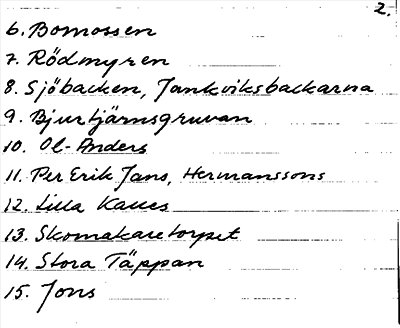 2.
6. Bomossen
7. Rödmyren
8. Sjöbacken, Jankviksbackarna
9. Bjurtjärnsgruvan
10. Ol-Anders
11. Per Erik Jans, Hermanssons
12. Lilla
13. Skomakaretorpet
14. Stora Täppan
15. Jons